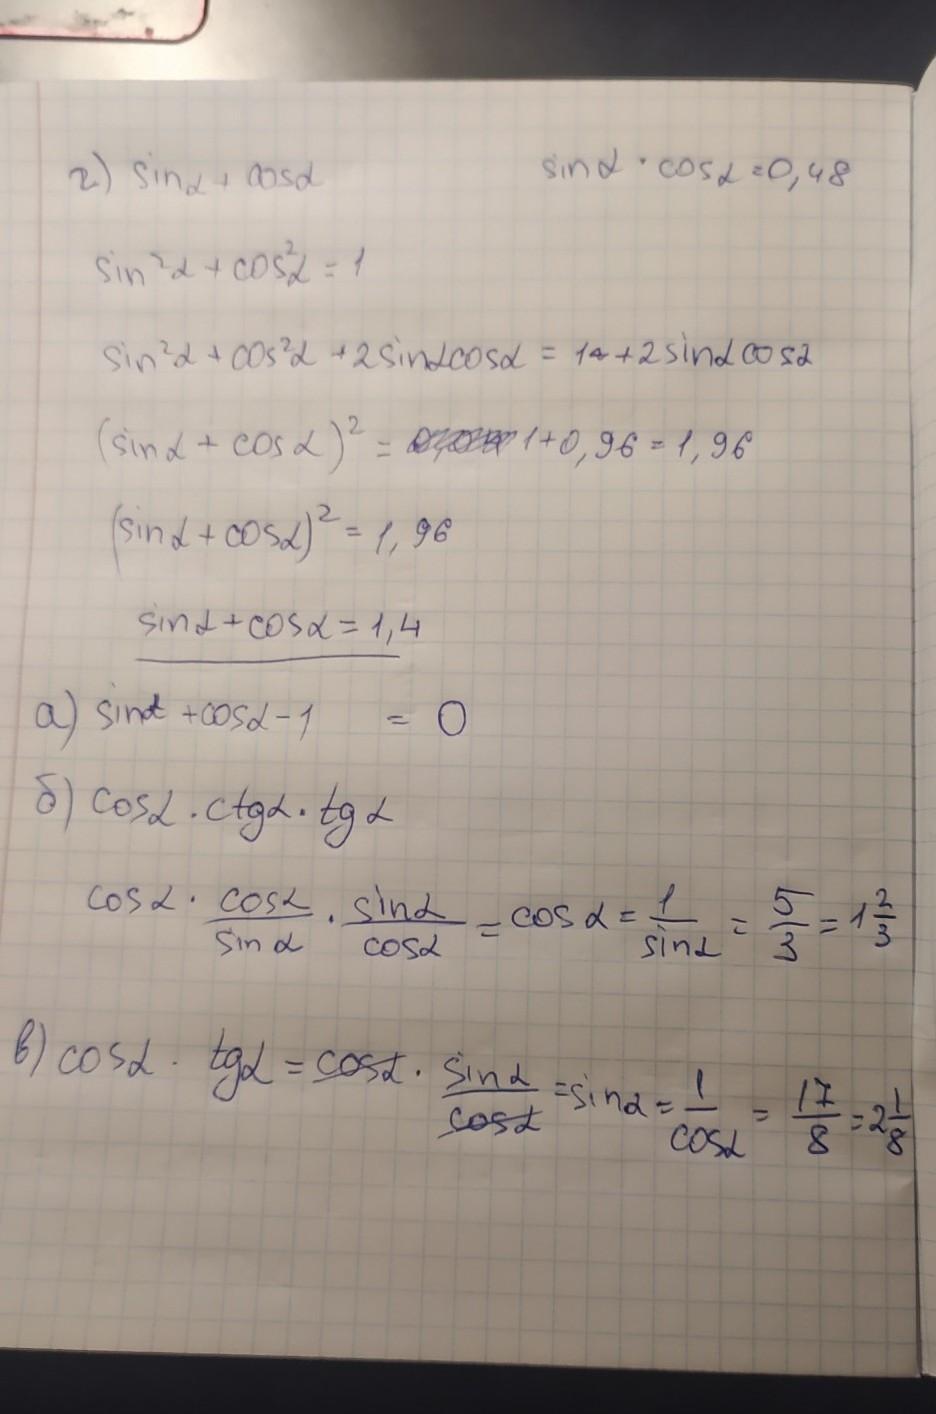 г) sinα + cosα sinα · cosα = 0,48
sin²α + cos²α = 1
sin²α + cos²α + 2sinαcosα = 1 + 2sinαcosα
(sinα + cosα)² = 1+0,96 = 1,96
(sinα + cosα)² = 1,96
sinα + cosα = 1,4
а) sinα + cosα - 1 = 0
б) cosα · ctgα · tgα
cosα · cosα/sinα · sinα/cosα = cosα = 1/sinα = 5/3 = 1 2/3
в) cosα · tgα = cosα · sinα/cosα = sinα = 1/cosα = 17/8 = 2 1/8